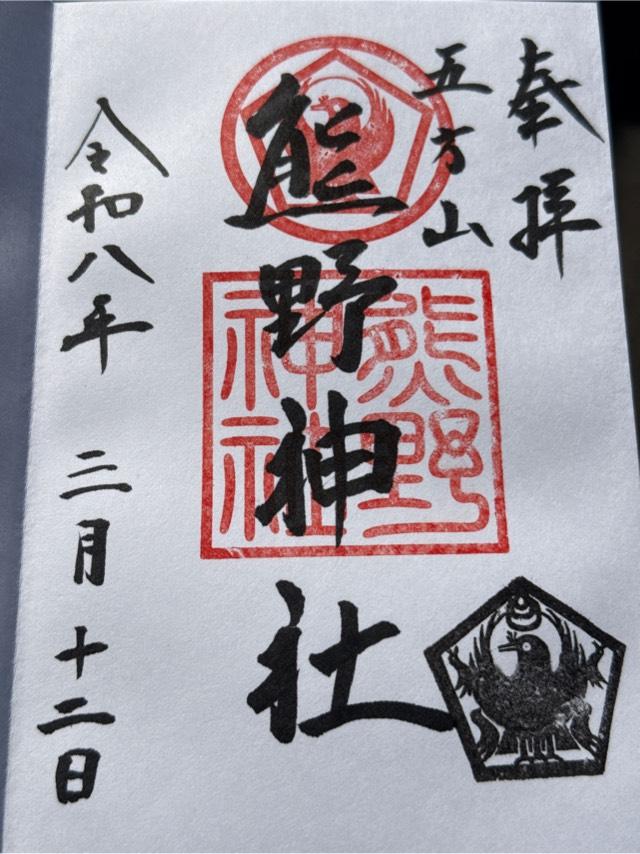 奉拝
五方山
熊野神社
熊野
神社
令和八年 三月十二日